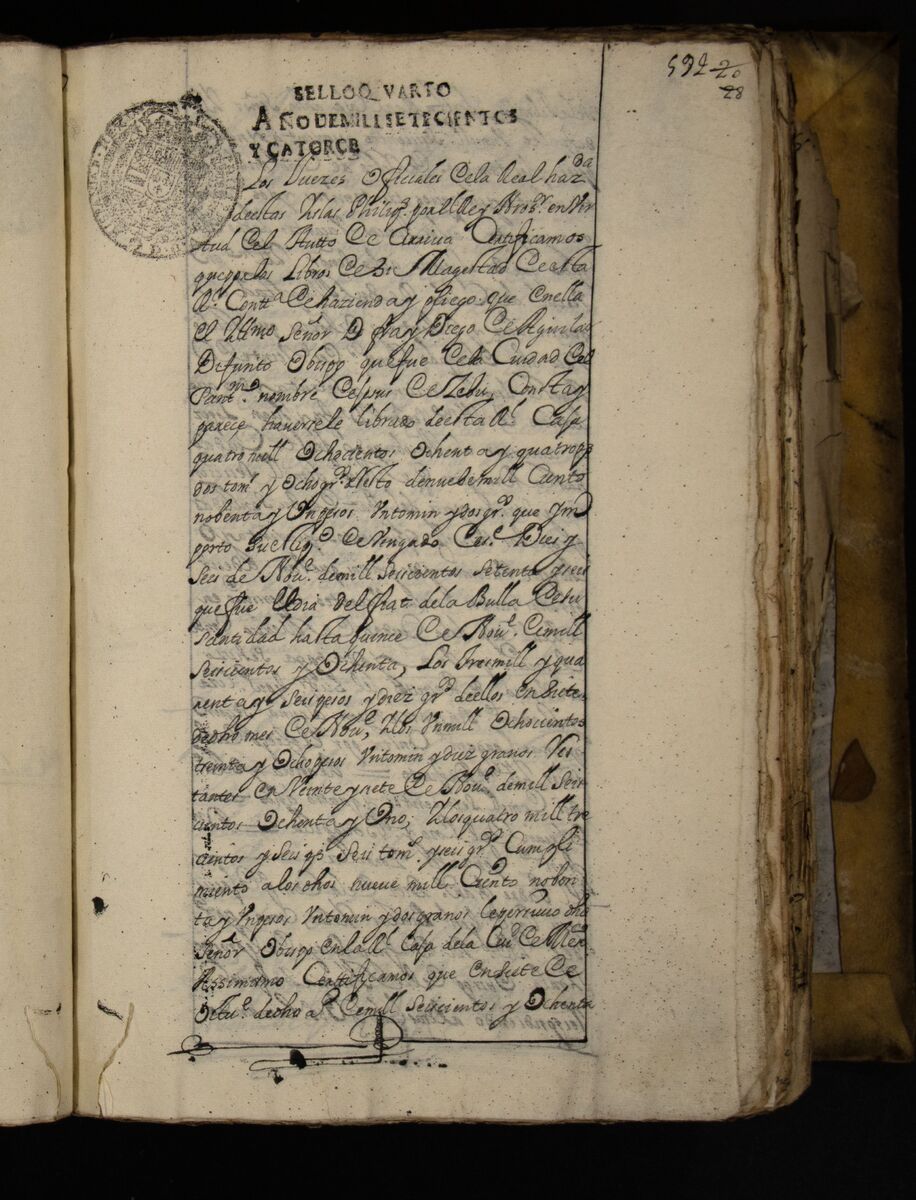 592 20
28
SELLO QVARTO
AÑO DE MIL I SETECIENTOS
Y CATORCE
Los Juezes Ofiçiales de la Real haz.da
destas Yslas Philip.s por el Rey Nro S.r en Vir
tud del Autto de arriva Certificamos
que por los Libros de Su Magestad de esta
R.l Cont.a de hazienda y pliego que en ella
el Ultimo Señor D fray Diego de Aguilar
Difunto Obispo que fue de la Ciudad del
Sant.mo nombre de Jesus de Zebu, Consta y
pareçe haversele librado de esta R.l Caja
quatro mill Ochocientos Ochenta y quatro ps
dos tom.s y Ocho gr.s a q.ta de nueve mill Ciento
nobenta y Un pesos Un tomin y dos gr.s que Ym
porto Su devengado des.e Diez y
Seis de Nov.e de mill Seiscientos Setenta y seis
que fue el dia del fiat de la Bulla de Su
Santidad hasta quince de Nov.e de mill
Seiscientos y Ochenta, Los tres mill y qua
renta y Seis pesos y diez gr.s de ellos en Siete
de dho mes de Nov.e, Y los Un mill Ochocientos
treinta y Ocho pesos Un tomin y diez granos Res
tantes en Veinte y siete de Nov.e de mill Seis
cientos Ochenta y Uno; Y los quatro mill tre
cientos y Seis p.s Seis tom.s y seis gr.s Cumpli
miento a los dhos nueve mill Ciento noben
ta y Un pesos Un tomin y dos granos los perciuio dho
Señor Obispo en la R.l Caja de la Ciu.d de Mex.co
Assimismo Certificamos que en Siete de
Octu.e de dho a.o de mill Seiscientos y Ochenta